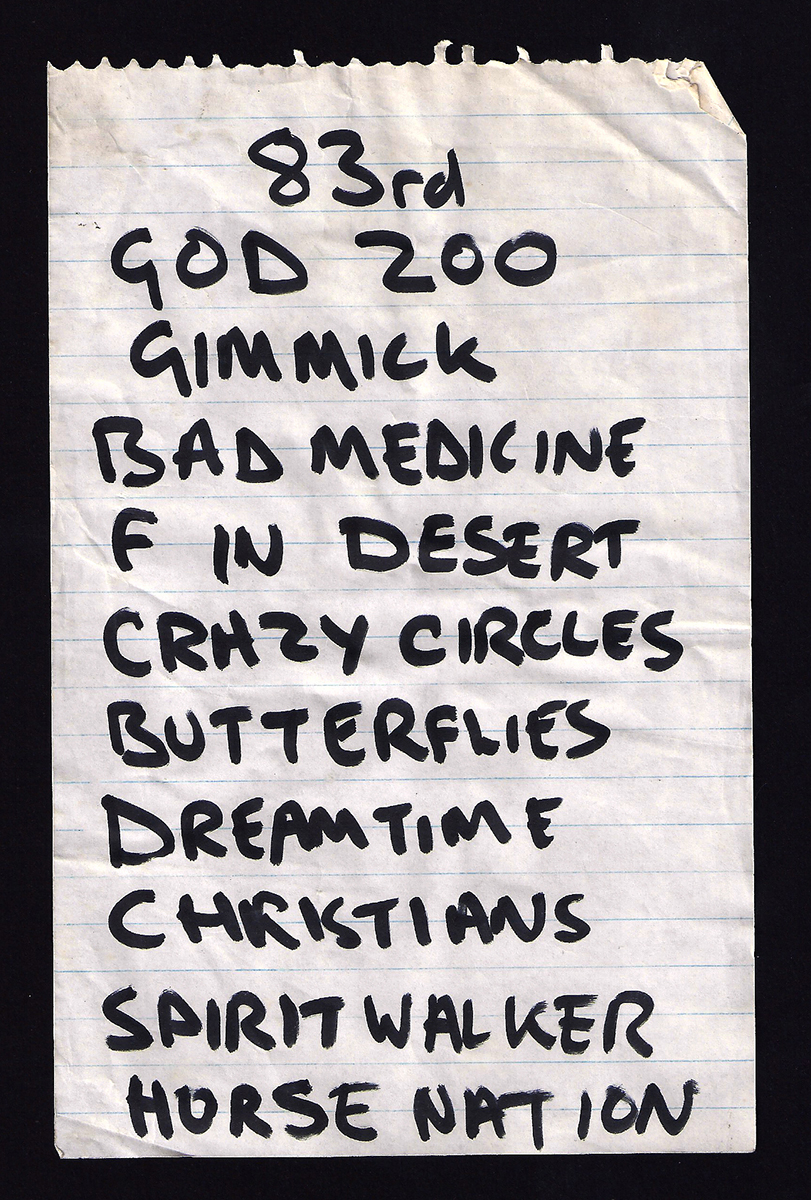 83rd
GOD ZOO
GIMMICK
BAD MEDICINE
F IN DESERT
CRAZY CIRCLES
BUTTERFLIES
DREAMTIME
CHRISTIANS
SPIRITWALKER
HORSE NATION